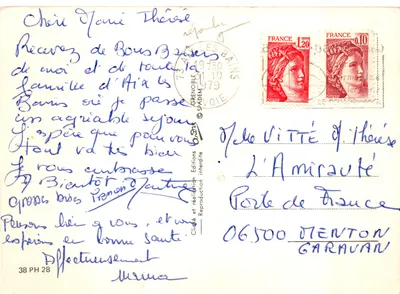 Chère Marie Thérèse
Recevez de Bons Baisers
de moi et de toute la
famille d'Aix les
Bains où je passe
un agréable séjour
J'espère que pour vous
tout va très bien
Je vous embrasse
A Bientôt
grosses bises
Pensons bien à vous, et vous
espérons en bonne santé.
Affectueusement
38 PH 28
Reproduction interdite
LES BAINS
1979
SAVOIE
FRANCE
1,20
FRANCE
0,10
Mlle VITTÉ M. Thérèse
L'Amirauté
Porte de France
06500 MENTON
GARAVAN